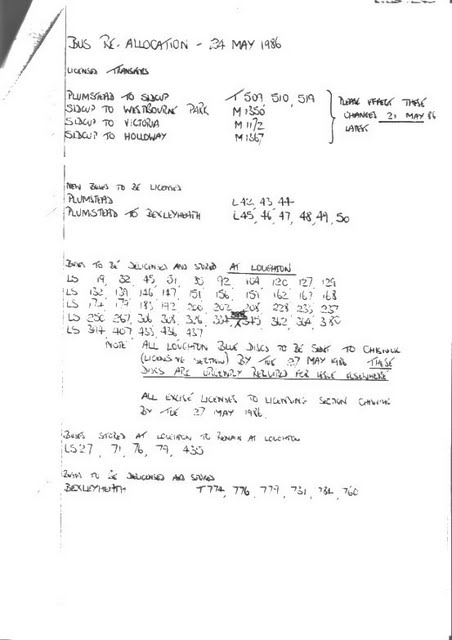 BUS RE-ALLOCATION - 24 MAY 1986
LICENSED TRANSFERS
PLUMSTEAD TO SIDCUP T 509, 510, 519
SIDCUP TO WESTBOURNE PARK M 1350
SIDCUP TO VICTORIA M 1172
SIDCUP TO HOLLOWAY M 1367
PLEASE EFFECT THESE
CHANGES 21 MAY 86
LATEST
NEW BUSES TO BE LICENSED
PLUMSTEAD L42, 43, 44
PLUMSTEAD TO BEXLEYHEATH L45, 46, 47, 48, 49, 50
BUSES TO BE DELICENSED AND STORED AT LOUGHTON
LS 19, 32, 45, 51, 92, 120, 127, 129
LS 132, 139, 146, 147, 151, 156, 159, 162, 167, 168
LS 174, 179, 183, 192, 200, 202, 208, 228, 235, 237
LS 250, 267, 306, 308, 326, 345, 362, 364, 380
LS 394, 407, 433, 436, 437
NOTE ALL LOUGHTON BLUE DISCS TO BE SENT TO CHISWICK
(LICENSING SECTION) BY TUE 27 MAY 1986 THESE
DISCS ARE URGENTLY REQUIRED FOR USE ELSEWHERE
ALL EXCISE LICENSES TO LICENSING SECTION CHISWICK
BY TUE 27 MAY 1986.
BUSES STORED AT LOUGHTON TO REMAIN AT LOUGHTON
LS 27, 71, 76, 79, 435
BUSES TO BE DELICENSED AND STORED
BEXLEYHEATH T 774, 776, 779, 731, 734, 760